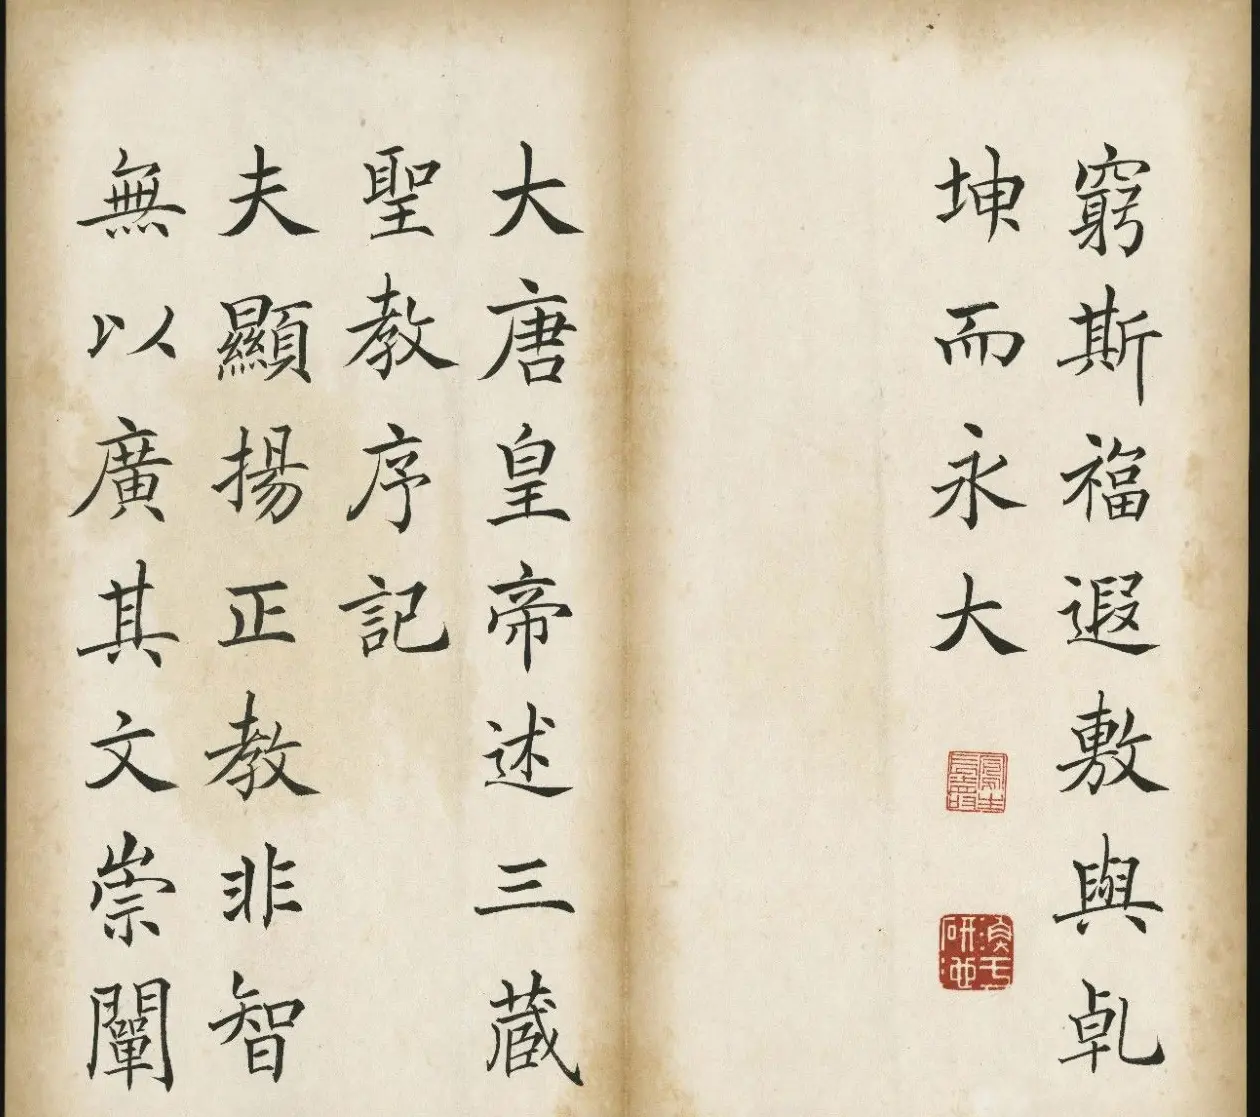 窮斯福遐敷與乹
坤而永大
大唐皇帝述三蔵
聖教序記
夫顯揚正教非智
無以廣其文崇闡